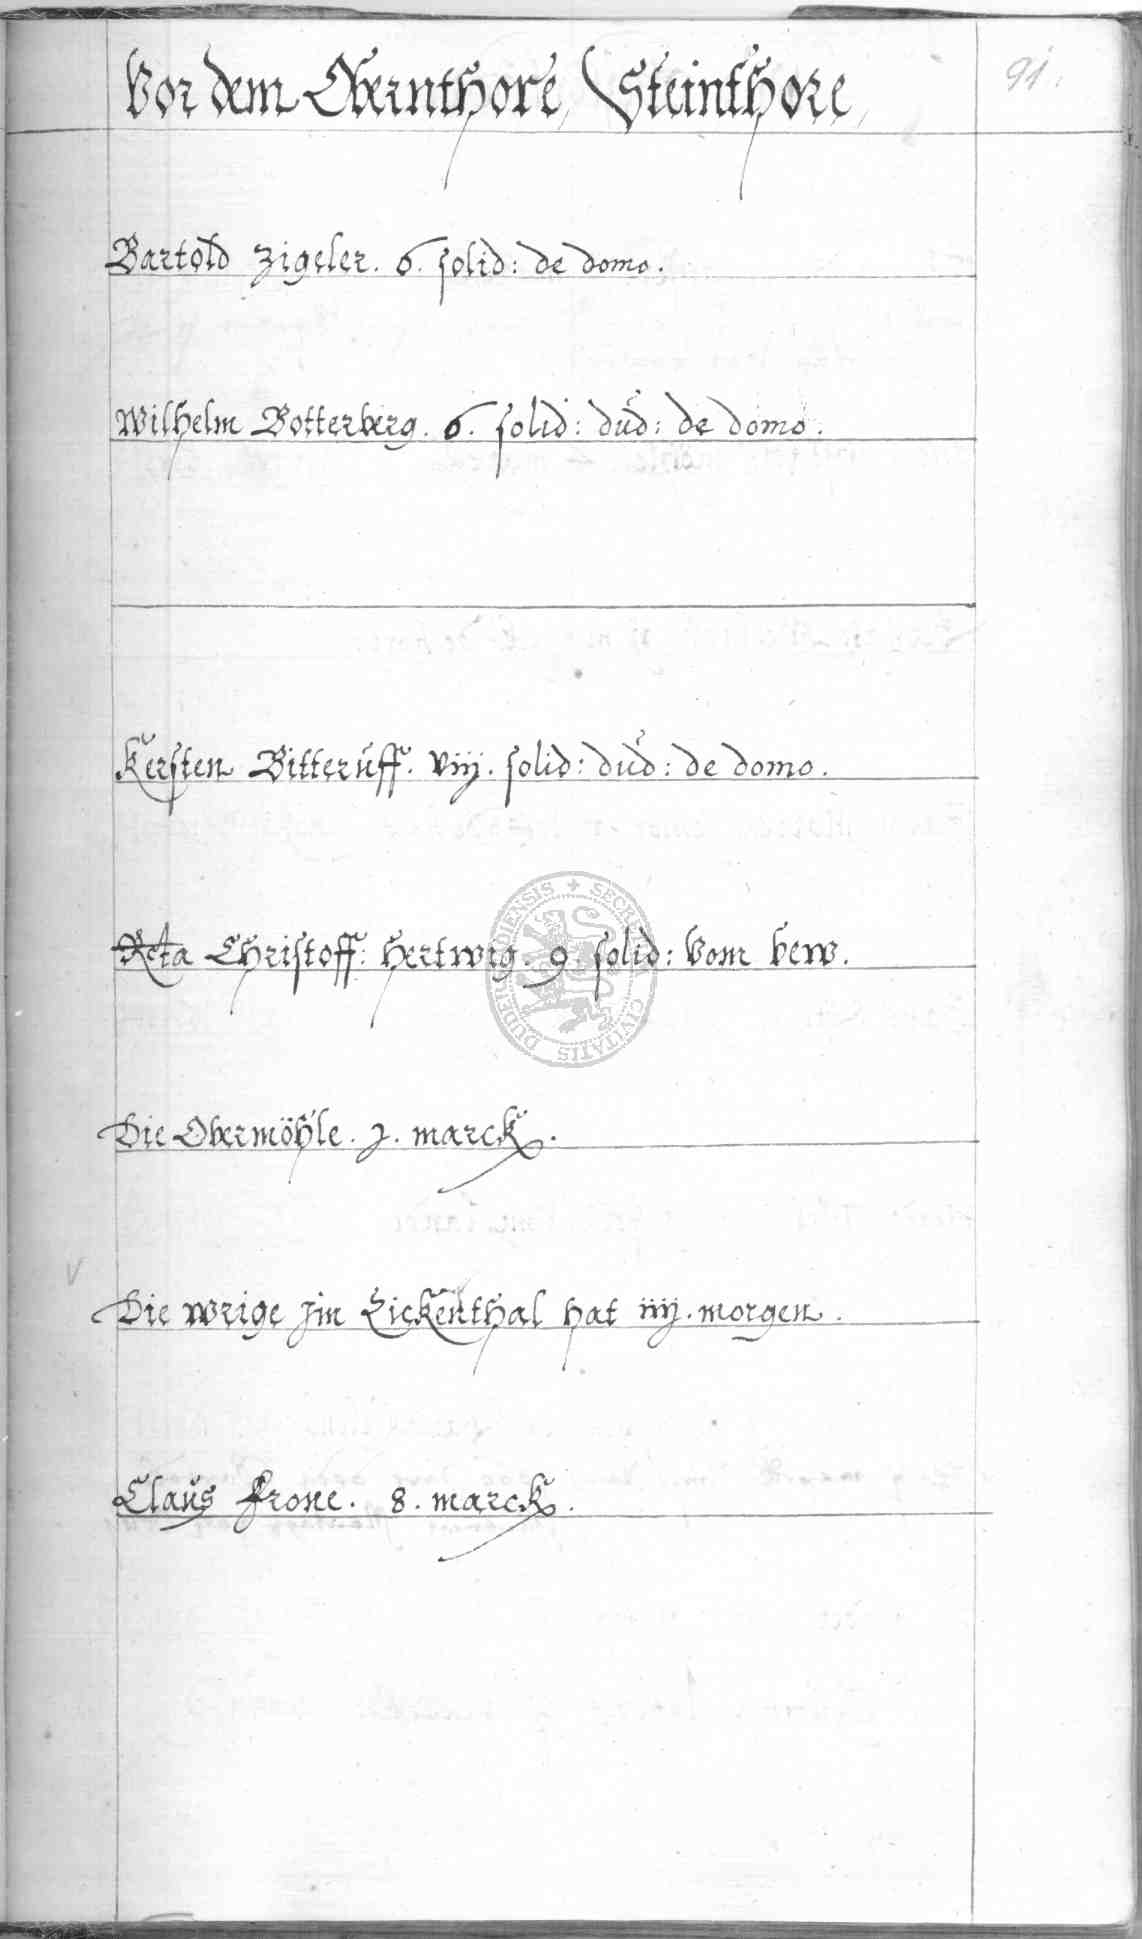 Vor dem Obernthore, Steinthore,
91.
Bartold Zigeler. 6. solid: de domo.
Wilhelm Botterberg. 6. solid: dud: de domo.
Kersten Bitteruff. viij. solid: dud: de domo.
Reta Christoff: Hertwig. 9. solid: Vom bew.
Die Obermöhle. j. marck.
V
Die wrige jm Eickenthal hat iiij. morgen.
Claus Frone. 8. marck.